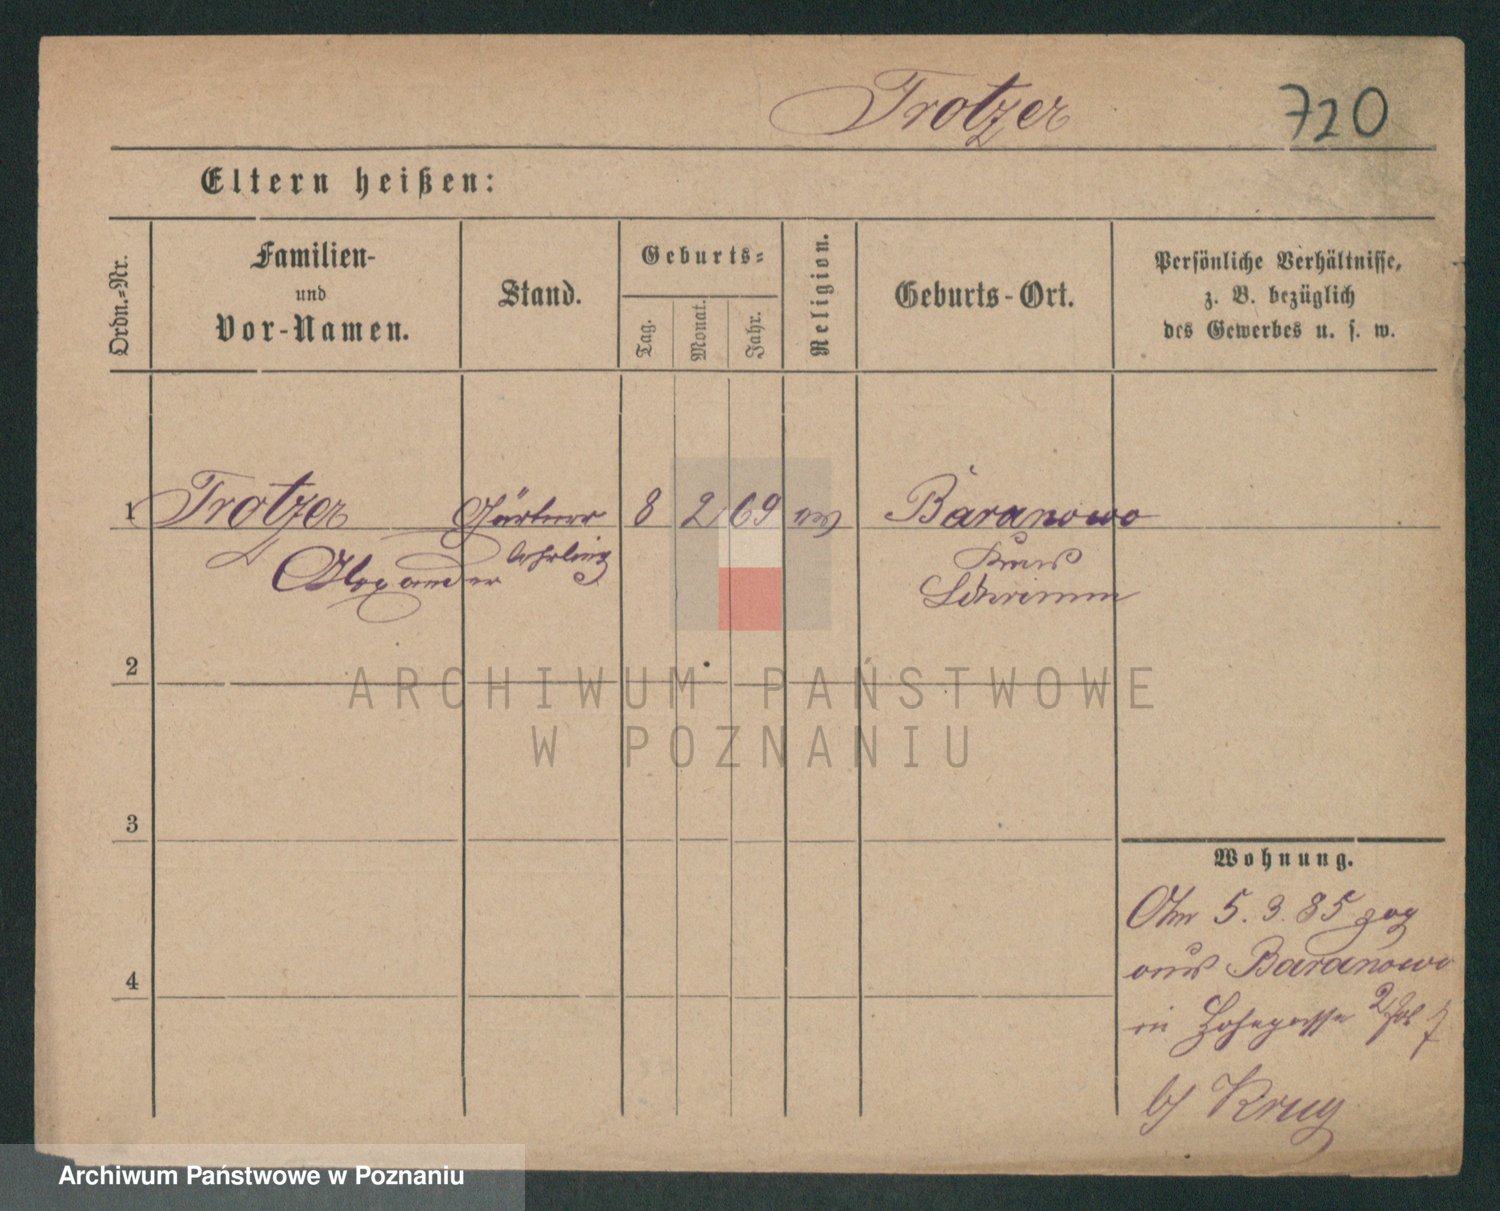 Trotzer 720
Eltern heißen:
Ordn.-Nr.
Familien-
und
Vor-Namen.
Stand.
Geburts-
Tag.
Monat.
Jahr.
Religion.
Geburts-Ort.
Persönliche Verhältnisse,
z. B. bezüglich
des Gewerbes u. s. w.
1 Trotzer Gärtner 8 2 69 ev Baranowo
Alexander lehrling Kreis
Schrimm
2
ARCHIWUM PAŃSTWOWE
W POZNANIU
3
Wohnung.
Am 5.3.85 zog
aus Baranowo
4
in 7
b/ Krug
Archiwum Państwowe w Poznaniu